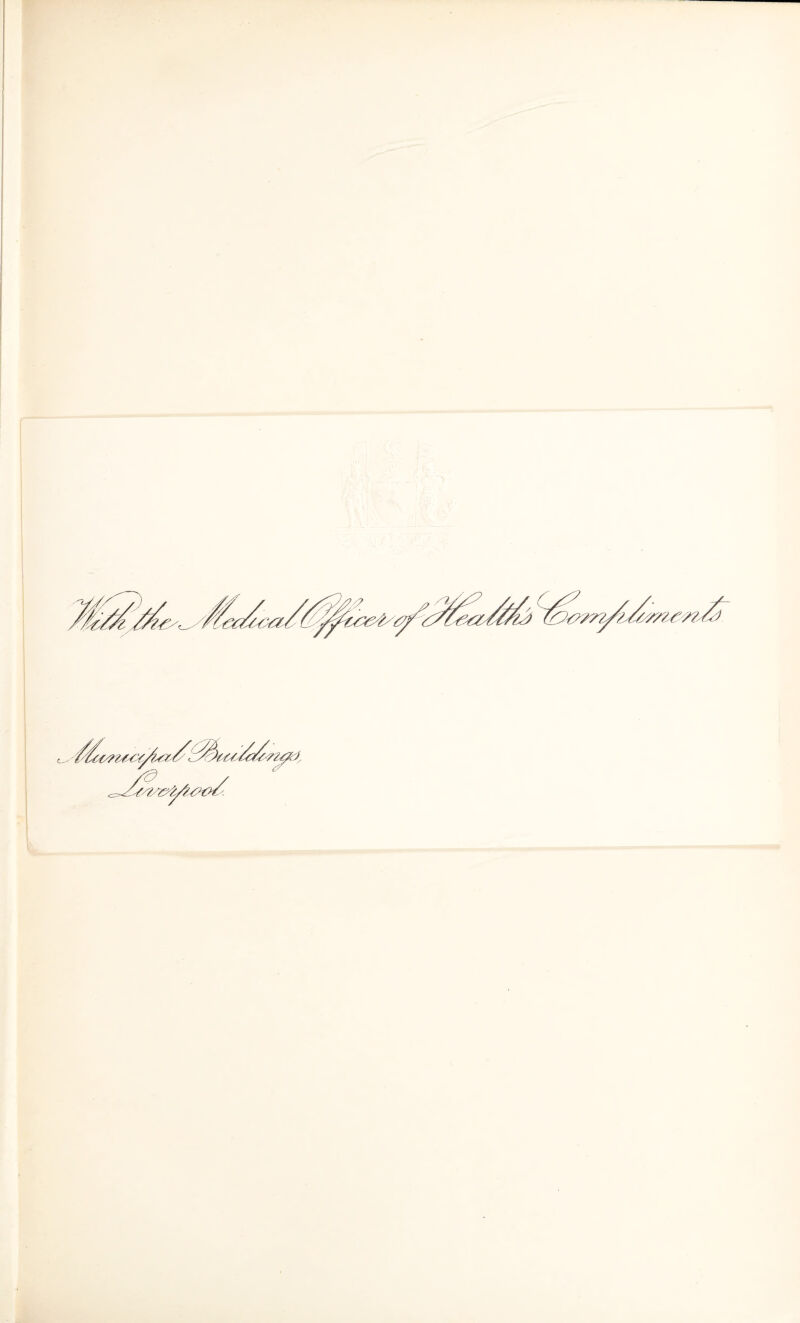 With the Medical Officer of Health's Compliments
Municipal Buildings,
Liverpool.